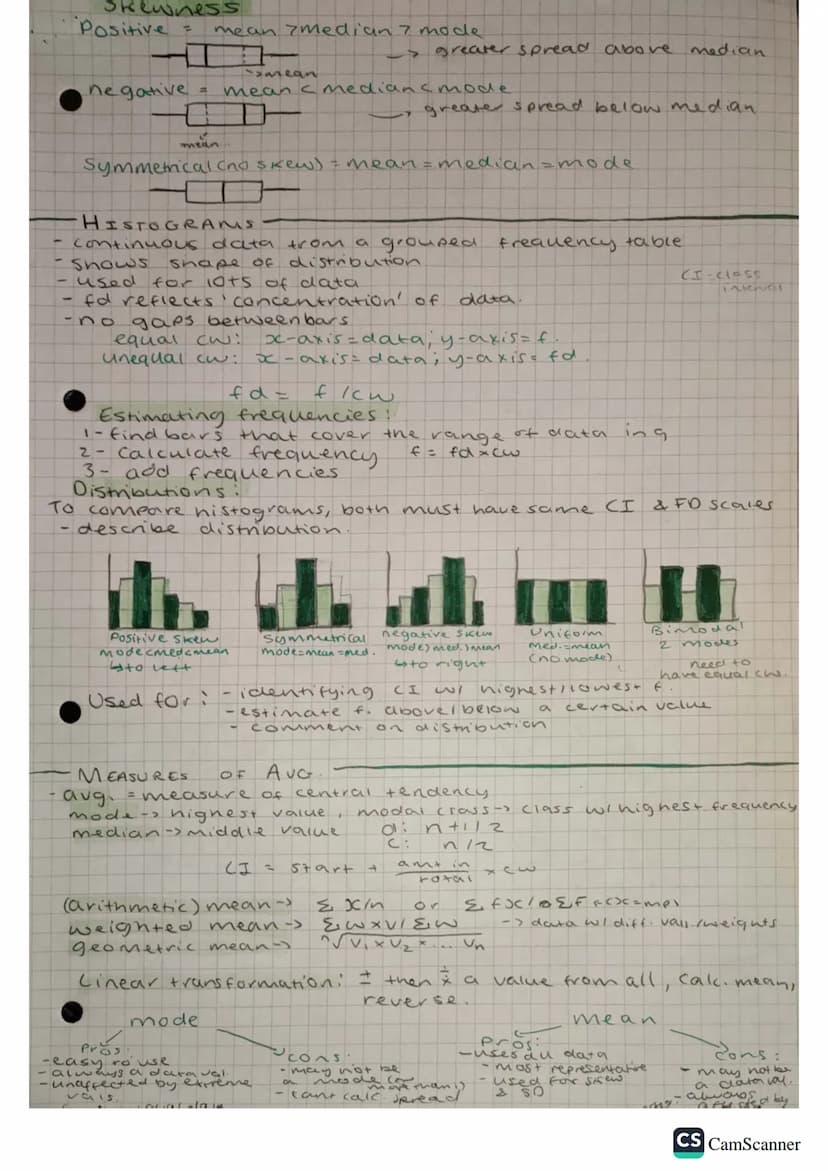 Skewness
Positive = mean > median > mode
→ greater spread above median
→ mean
negative = mean < median < mode
→ greater spread below median
mean
Symmetrical (no skew) = mean = median = mode
HISTOGRAMS
- continuous data from a grouped frequency table
- shows shape of distribution
CI - class
interval
- used for lots of data
- fd reflects 'concentration' of data.
- no gaps between bars
equal cw: x-axis = data; y-axis = f.
unequal cw: x-axis = data; y-axis = fd.
fd = f / cw
Estimating frequencies:
1 - find bars that cover the range of data in q
2 - calculate frequency f = fd × cw
3 - add frequencies
Distributions:
To compare histograms, both must have same CI & FD scales
- describe distribution.
Positive skew
mode<med<mean
↳ to left
Symmetrical
mode=mean=med.
negative skew
mode>med.>mean
↳ to right
Uniform
med.=mean
(no mode)
Bimodal
2 modes
need to
have equal cw.
Used for: - identifying CI w/ highest/lowest f.
- estimate f. above/below a certain value
- comment on distribution
MEASURES OF AVG.
- avg. = measure of central tendency
mode -> highest value, modal class -> class w/ highest frequency
median -> middle value d: n+1/2
c: n/2
CI = start + amt in / total × cw
(arithmetic) mean -> Σx/n or Σfx/ Σf
weighted mean -> Σw×v/Σw -> data w/ diff. vals./weights
geometric mean -> ⁿ√v₁×v₂×... vₙ
Linear transformation: ± then ×/÷ a value from all, calc. mean,
reverse.
mode
mean
Pros:
- easy to use
- always a data val.
- unaffected by extreme
vals.
cons:
- may not be
a mode (or
many)
- can't calc. spread
Pros:
- uses all data
- most representative
- used for skew
& SD
Cons:
- may not be
a data val.
- always
affected by